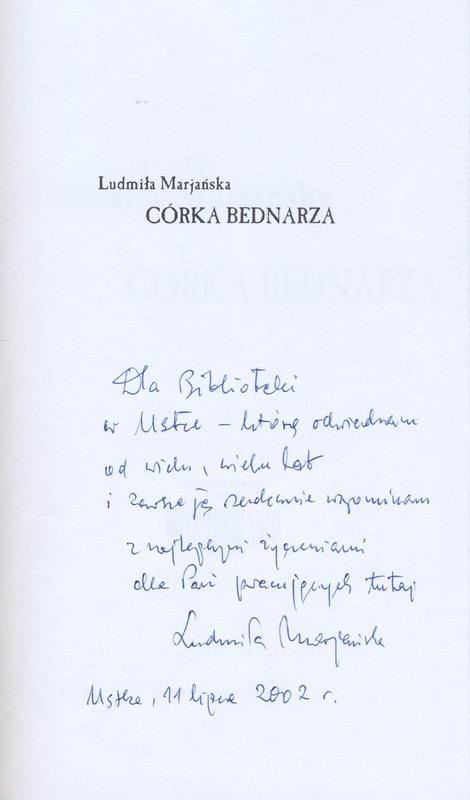 Ludmiła Marjańska
CÓRKA BEDNARZA
Dla Biblioteki
w Ustce – którą odwiedzam
od wielu, wielu lat
i zawsze ją serdecznie wspominam
z najlepszymi życzeniami
dla Pań pracujących tutaj
Ludmiła Marjańska
Ustka, 11 lipca 2002 r.